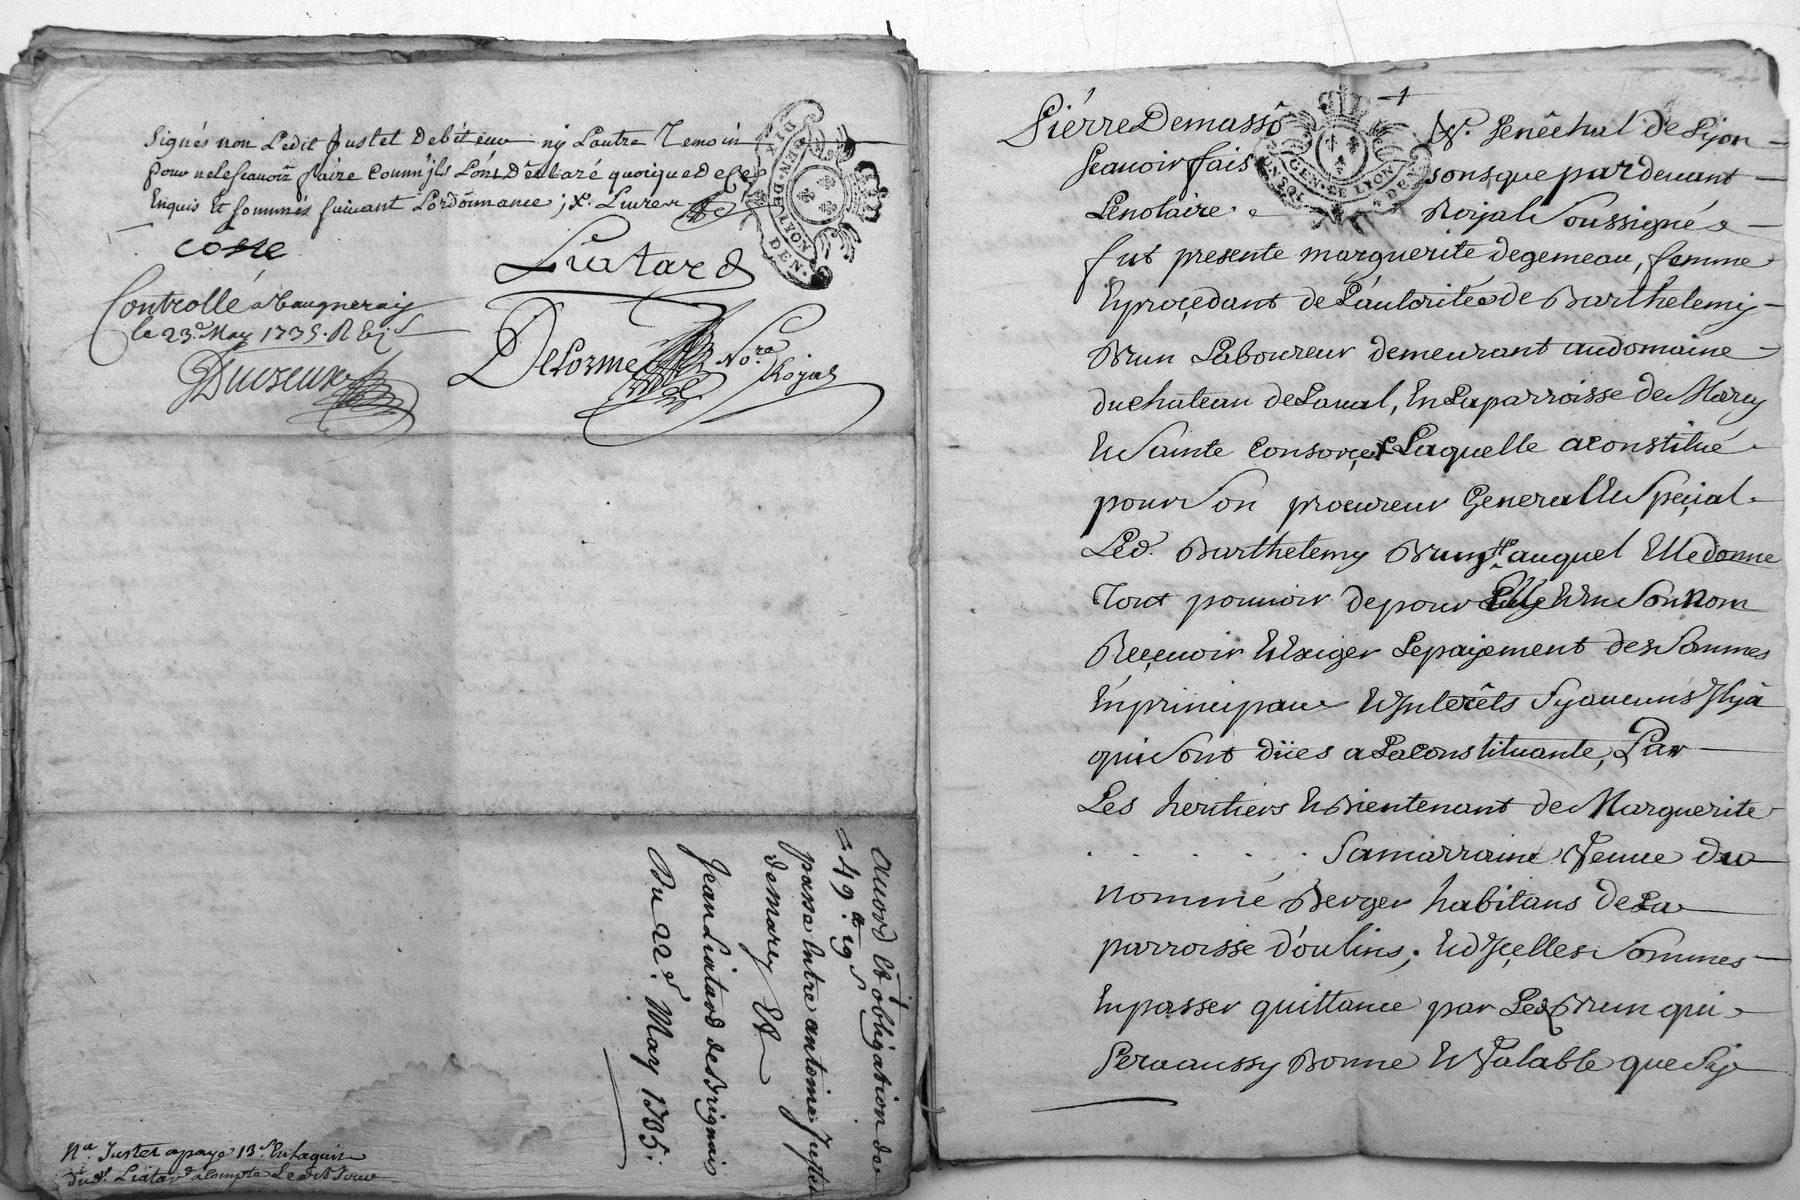 Signés non Ledit Justet Debiteur ny Lautre Temoin
pour ne le scavoir faire Comm'jls L'ont Déclaré quoique De ce
Enquis Et sommés suivant Lordonnance ;
cosse
Liatard
Controllé a Vaugneray
le 23e. May 1735. R
Delorme No.re Royal
GEN. DE LYON
Accord Et obligation de
249 tt 19 s
passé Entre antoine Justet
de marcy Et
Jean Liatard de Brignais
Du 22e. May 1735.
Na Justet a paye 13 s
du d. Liatard a compte Ledit Jour
Piérre Demassô Sr. Senêchal de Lyon
Scavoir faisons que par devant
Le notaire Royal Soussigné
fut presente marguerite degemeau, femme
Et proçedant de L'autoritée de Barthelemy
Brun Laboureur demeurant au domaine
du chateau de Laual, En La parroisse de Marcy
Et Sainte Consorçe Laquelle a constitué
pour Son procureur General Et Speçial
Led. Barthelemy Brun auquel Elle donne
Tout pouuoir de pour Elle Et En Son Nom
Reçeuoir Et Exiger Le payement des Sommes
En principaux Et Interêts Sy aucuns Il y a
qui Sont dües a La constituante, Par
Les heritiers Et Bientenant de Marguerite
. . . . . Samarraine Veuue du
nommé Berger habitans de La
parroisse d'oulins ; Et d'Içelles Sommes
En passer quittance par Led Brun qui
Sera aussy Bonne Et Valable que Sy